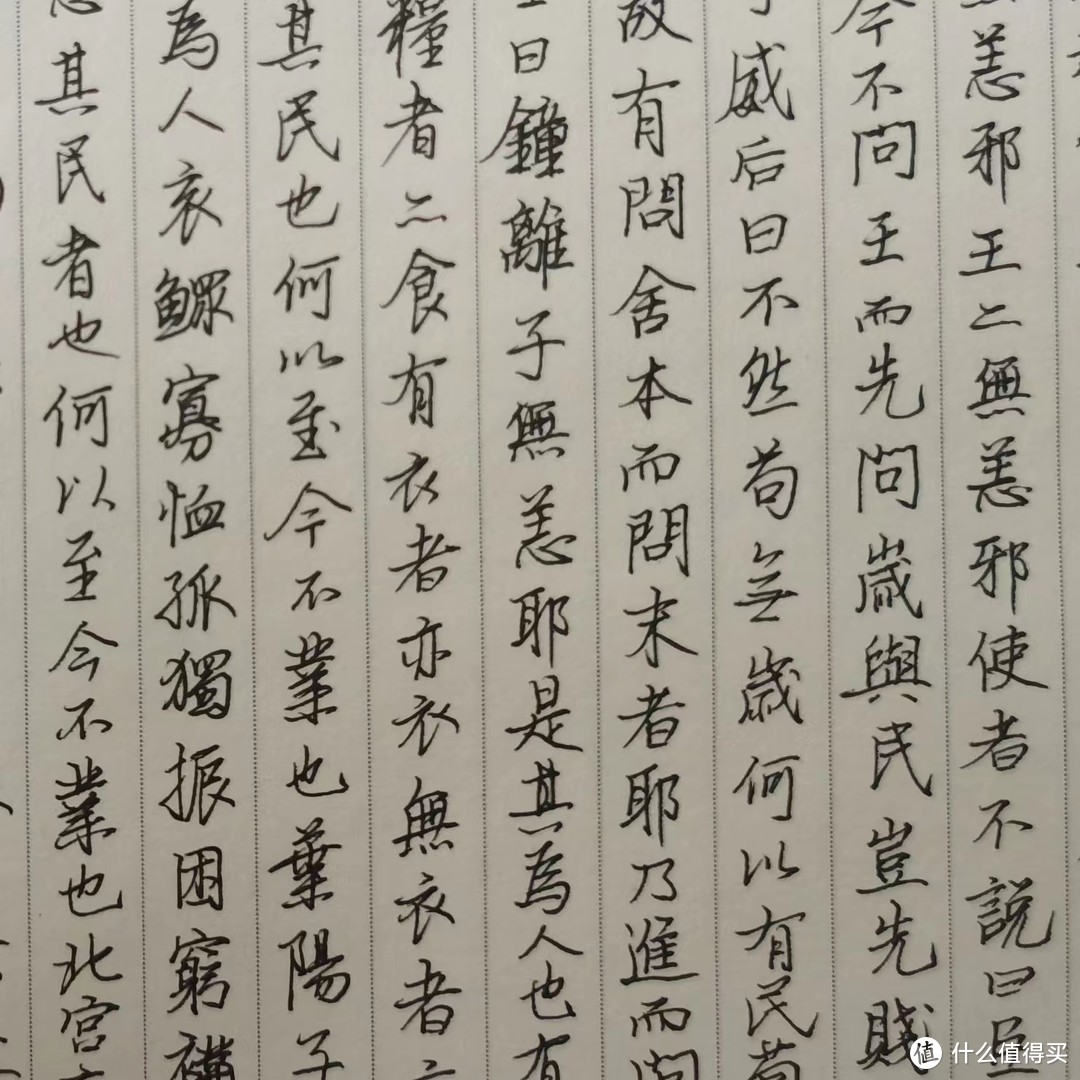 無恙邪王亠無恙邪使者不說曰臣
今不問王而先問歲與民豈先賤
威后曰不然苟無歲何以有民苟
故有問舍本而問末者耶乃進而問
曰鍾離子無恙耶是其為人也有
糧者亦食有衣者亦衣無衣者亦
其民也何以至今不業也葉陽子
為人哀鰥寡恤孤獨振困窮補
其民者也何以至今不業也北宮
什么值得买